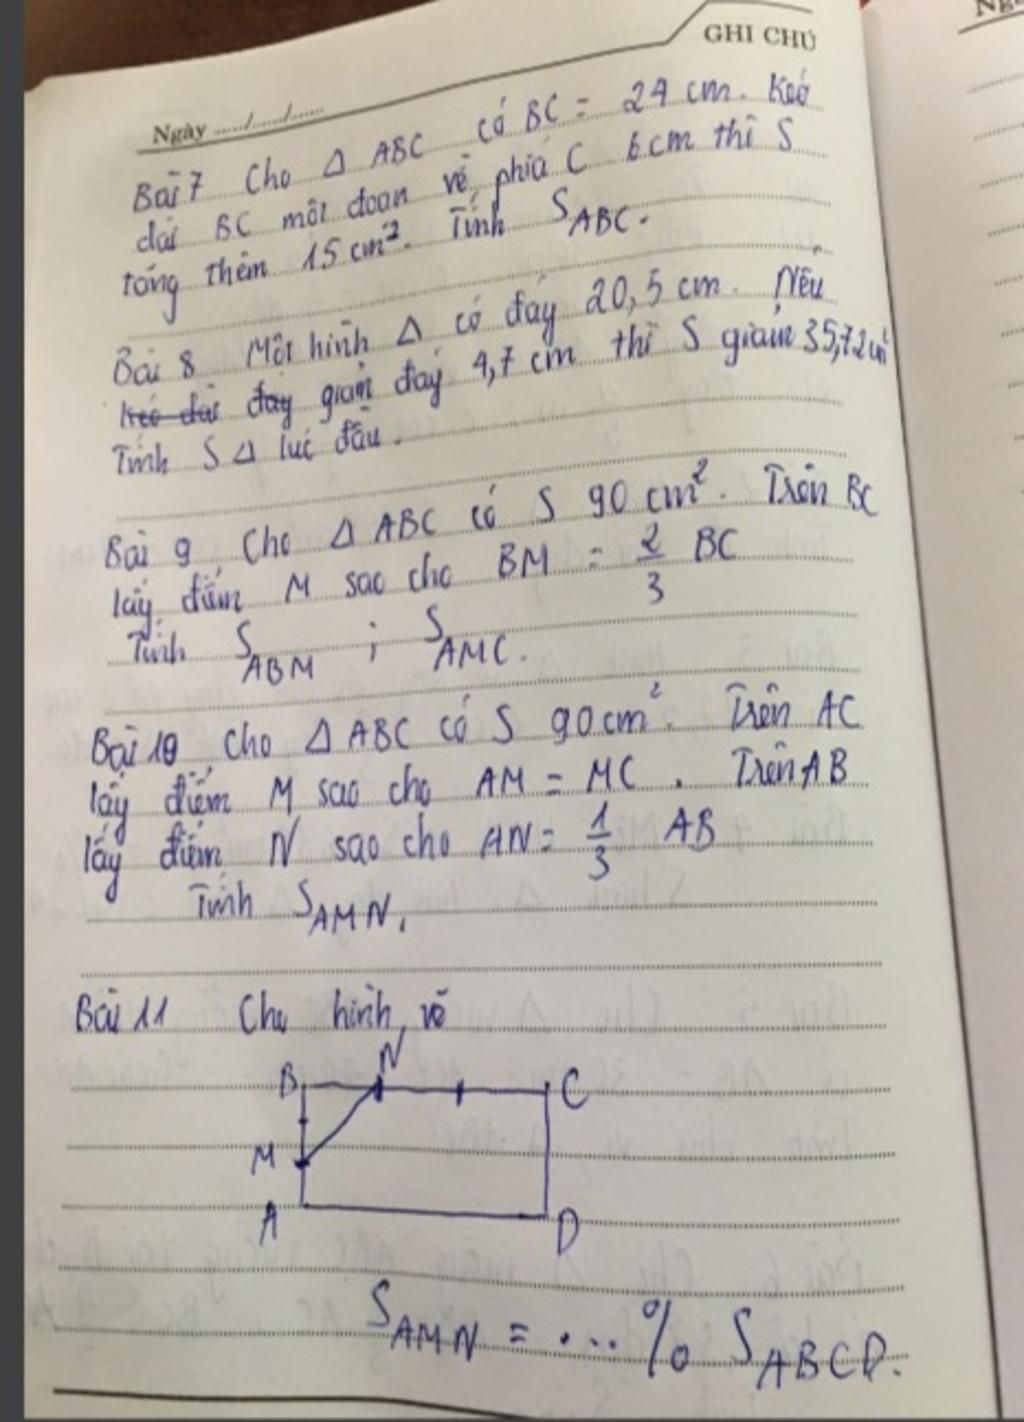 GHI CHÚ
Ngày ..../..../.....
Bài 7 Cho Δ ABC có BC = 24 cm. Kéo
dài BC một đoạn về phía C 6cm thì S
tăng thêm 15 cm². Tính S_ABC.
Bài 8 Một hình Δ có đáy 20,5 cm. Nếu
kéo dài đáy giảm đáy 4,7 cm thì S giảm 35,72cm²
Tính S Δ lúc đầu.
Bài 9 Cho Δ ABC có S 90 cm². Trên BC
lấy điểm M sao cho BM = 2/3 BC
Tính S_ABM ; S_AMC.
Bài 10 Cho Δ ABC có S 90cm². Trên AC
lấy điểm M sao cho AM = MC. Trên AB
lấy điểm N sao cho AN = 1/3 AB
Tính S_AMN.
Bài 11 Cho hình vẽ
B N C
M
A D
S_AMN = ... % S_ABCD.